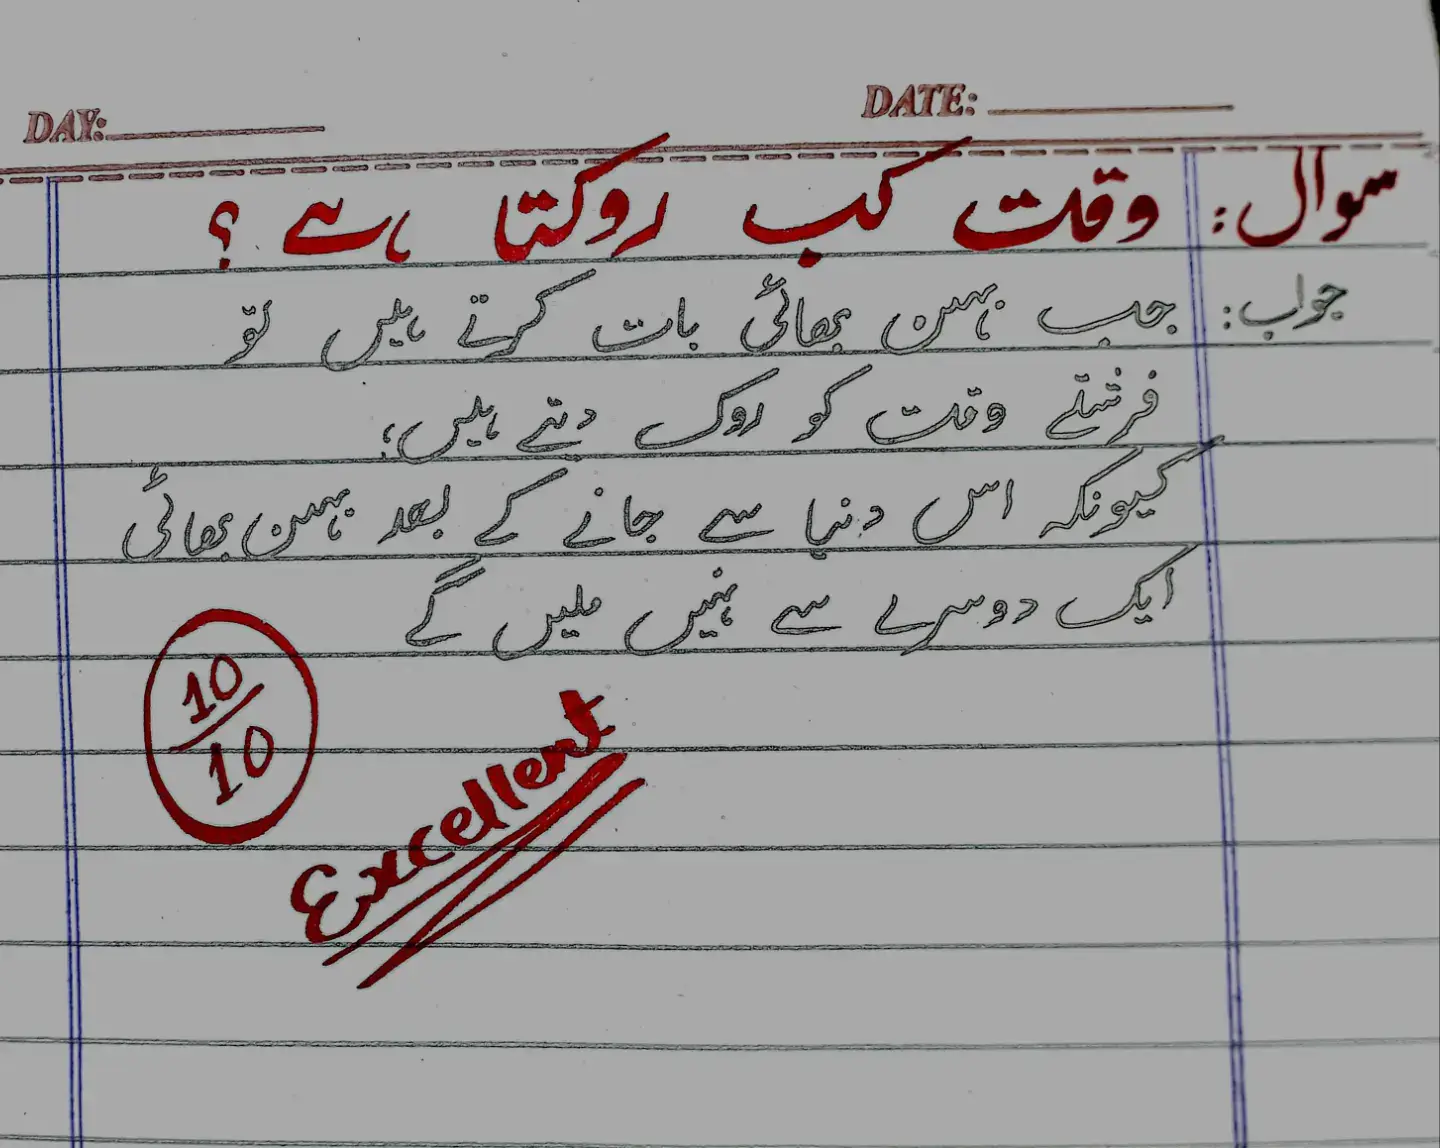 DAY: DATE:
سوال: وقت کب روکتا ہے ؟
جواب: جب بہن بھائی بات کرتے ہیں تو
فرشتے وقت کو روک دیتے ہیں؛
کیونکہ اس دنیا سے جانے کے بعد بہن بھائی
ایک دوسرے سے نہیں ملیں گے
10/10
Excellent